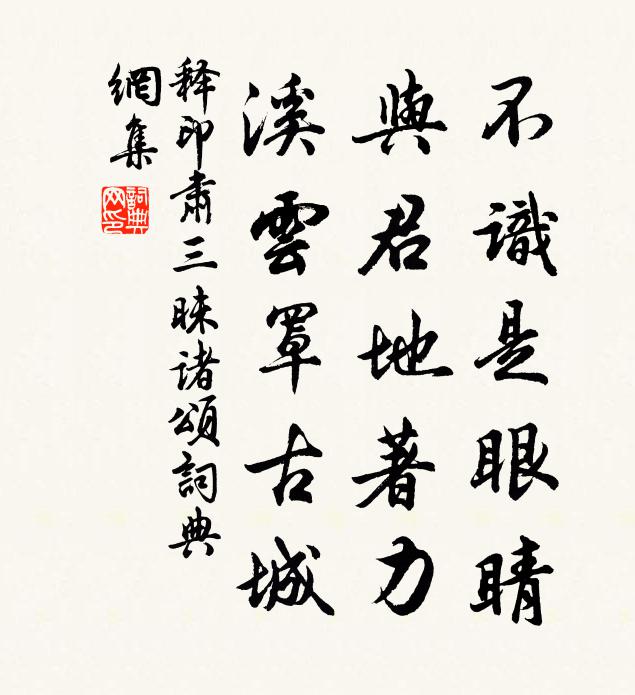 不識是眼睛
與君地著力
溪雲罩古城
释印肅三昧诸頌詞典
網集
詞典網印